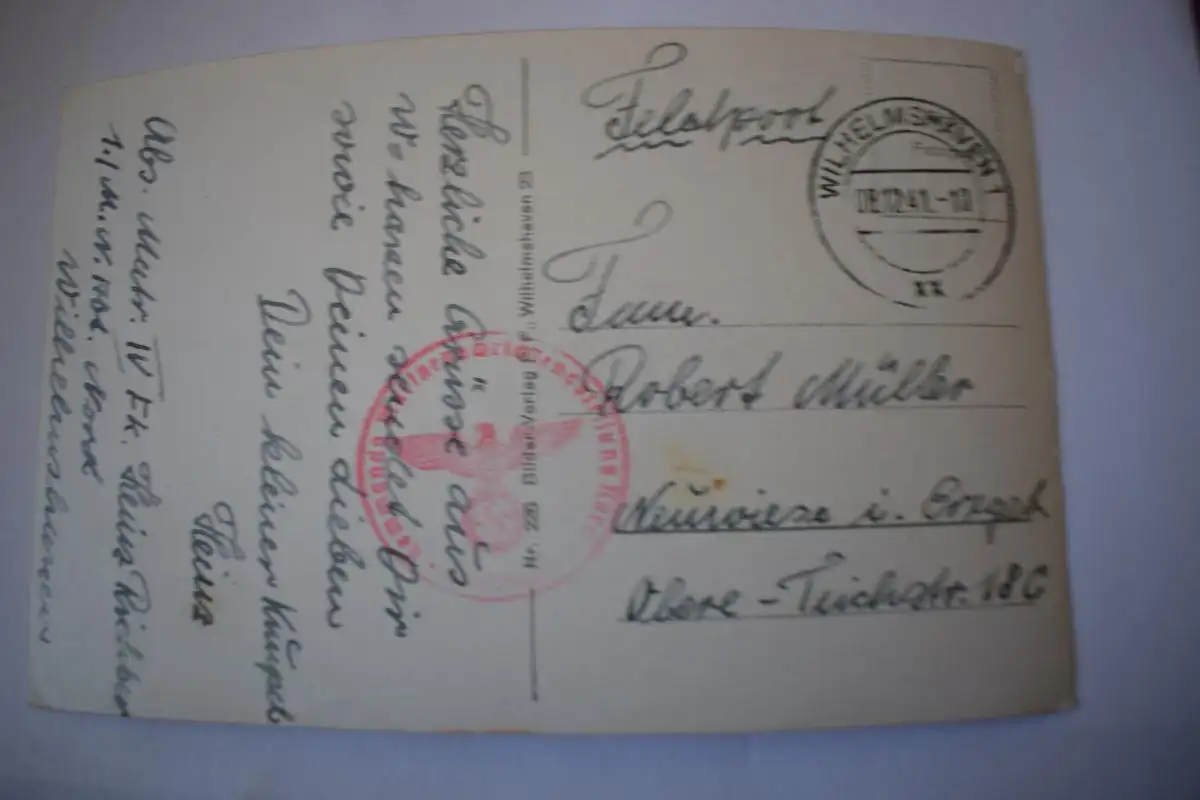 Feldpost
WILHELMSHAVEN 1
08.12.41.-10
** 
Fam.
Robert Müller
Neuwiese i. Erzgeb.
Obere-Teichstr. 18C
Nr. 229 Bilder-Verlag Wilhelmshaven
Herzliche Grüsse aus
W. haven sendet Dir
sowie Deinen Lieben
Dein kleiner
Heinz
Abs. Matr. IV Ek. Heinz
1./M.N. Nord
Wilhelmshaven